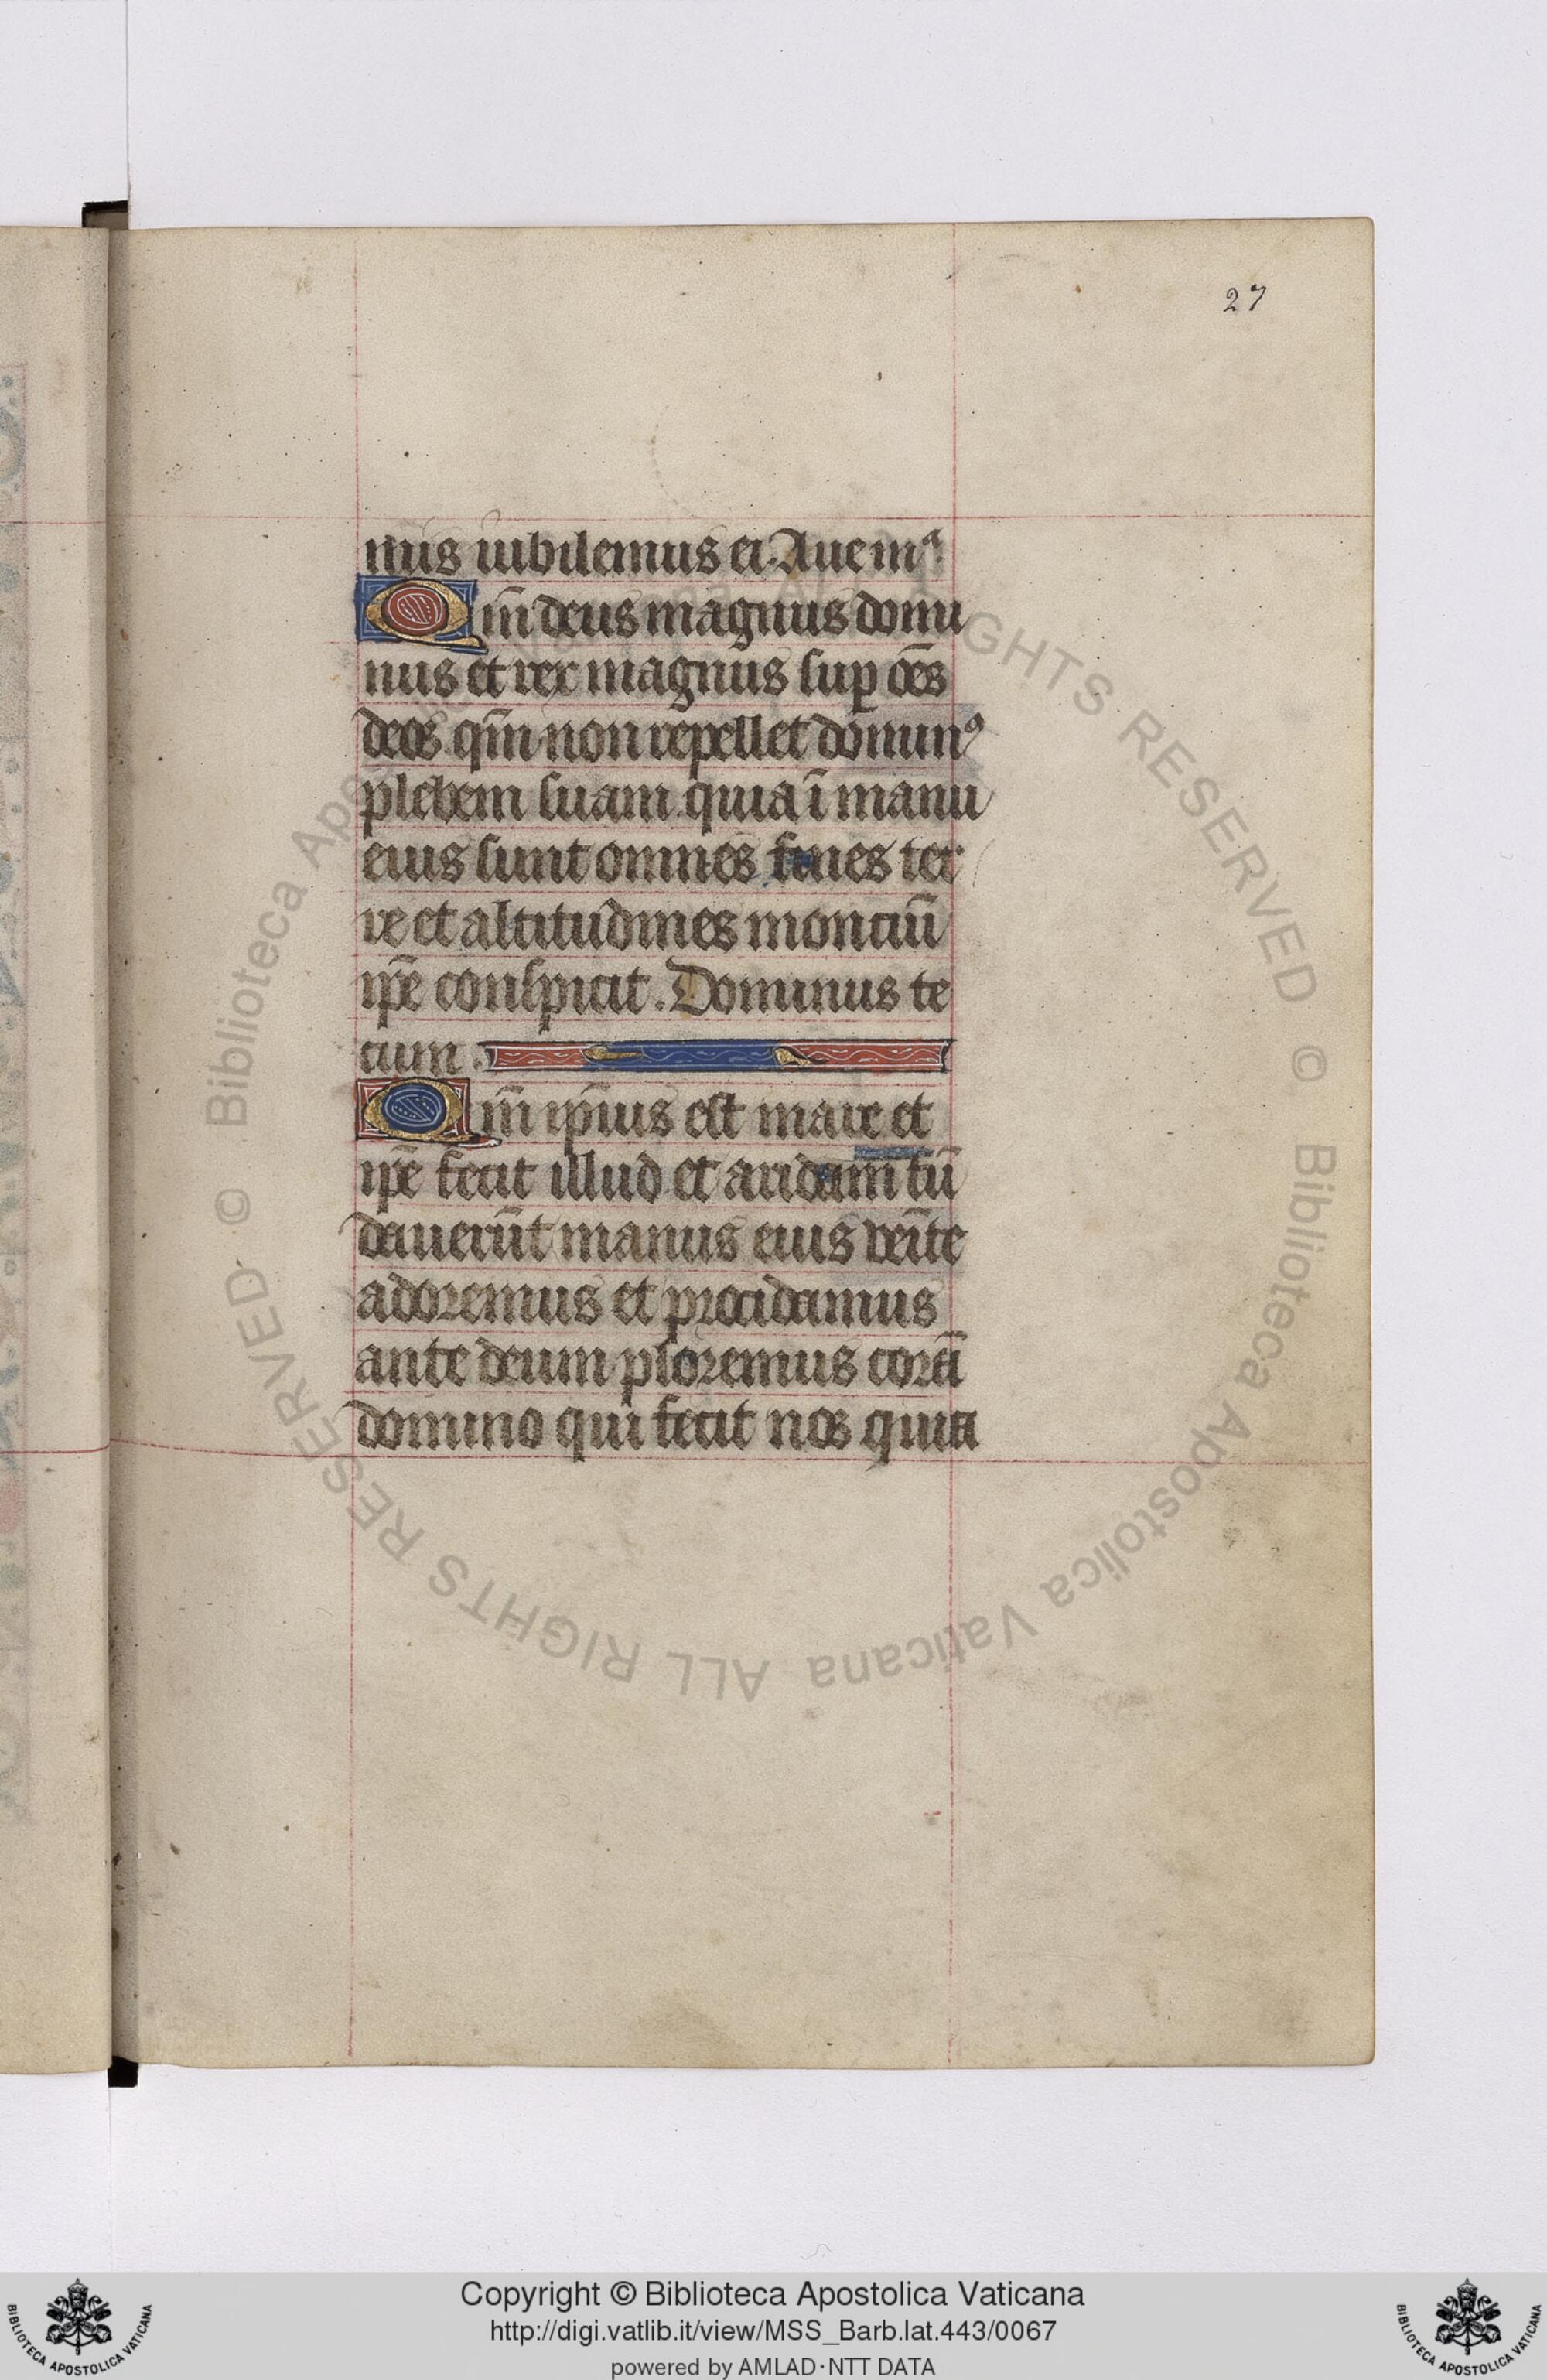 27
mus iubilemus ei. Aue mᵃ.
Qm̄ deus magnus domi
nus et rex magnus suꝑ oēs
deos. qm̄ non repellet dominꝰ
plebem suam. quia ī manu
eius sunt omnes fines ter
re et altitudines monciū
ip̄e conspicit. Dominus te
cum.
Qm̄ ip̄ius est mare et
ip̄e fecit illud et aridam fū
dauerūt manus eius veīte
adoremus et procidamus
ante deum ploremus corā
domino qui fecit nos quia
© Biblioteca Apostolica Vaticana ALL RIGHTS RESERVED © Biblioteca Apostolica Vaticana ALL RIGHTS RESERVED
Copyright © Biblioteca Apostolica Vaticana
http://digi.vatlib.it/view/MSS_Barb.lat.443/0067
powered by AMLAD·NTT DATA
BIBLIOTECA APOSTOLICA VATICANA
BIBLIOTECA APOSTOLICA VATICANA